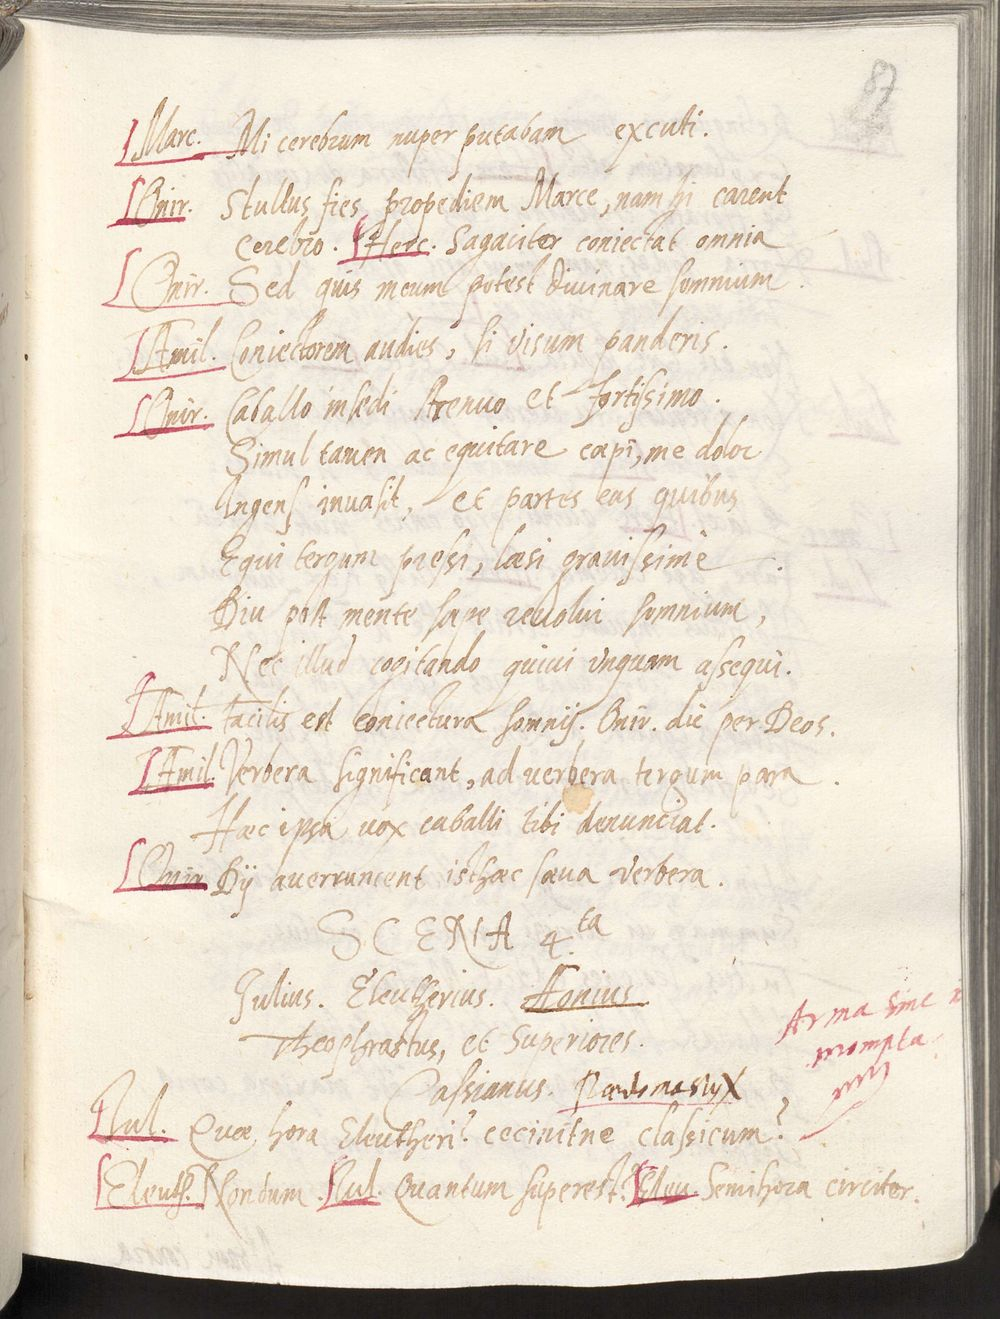 87
Marc. Mi cerebrum nuper putabam excuti.
Onir. Stultus fies propediem Marce, nam hi carent
cerebro. Herc. Sagaciter coniectat omnia
Onir. Sed quis meum potest divinare somnium.
Amil. Coniectorem audies, si visum panderis.
Onir. Caballo insedi strenuo et fortissimo.
Simul tamen ac equitare cœpi, me dolor
Ingens invasit, et partes eas quibus
Equi tergum pressi, læsi gravissime.
Diu post mente sæpe revolui somnium,
Nec illud cogitando quivi unquam assequi.
Amil. Facilis est coniectura somnij. Onir. dic per Deos.
Amil. Verbera significant, ad verbera tergum para.
Hæc ipsa vox caballi tibi denunciat.
Onir. Dij averruncent isthæc sæva verbera.
SCENA 4.ta
Julius. Eleutherius. Aonius
Theophrastus, et Superiores.
Arma sine
prompta
Cassianus. Pædomastyx
Jul. Quæ hora Eleutheri? cecinitne classicum?
Eleuth. Nondum. Jul. Quantum superest? Eleu. Semihora circiter.